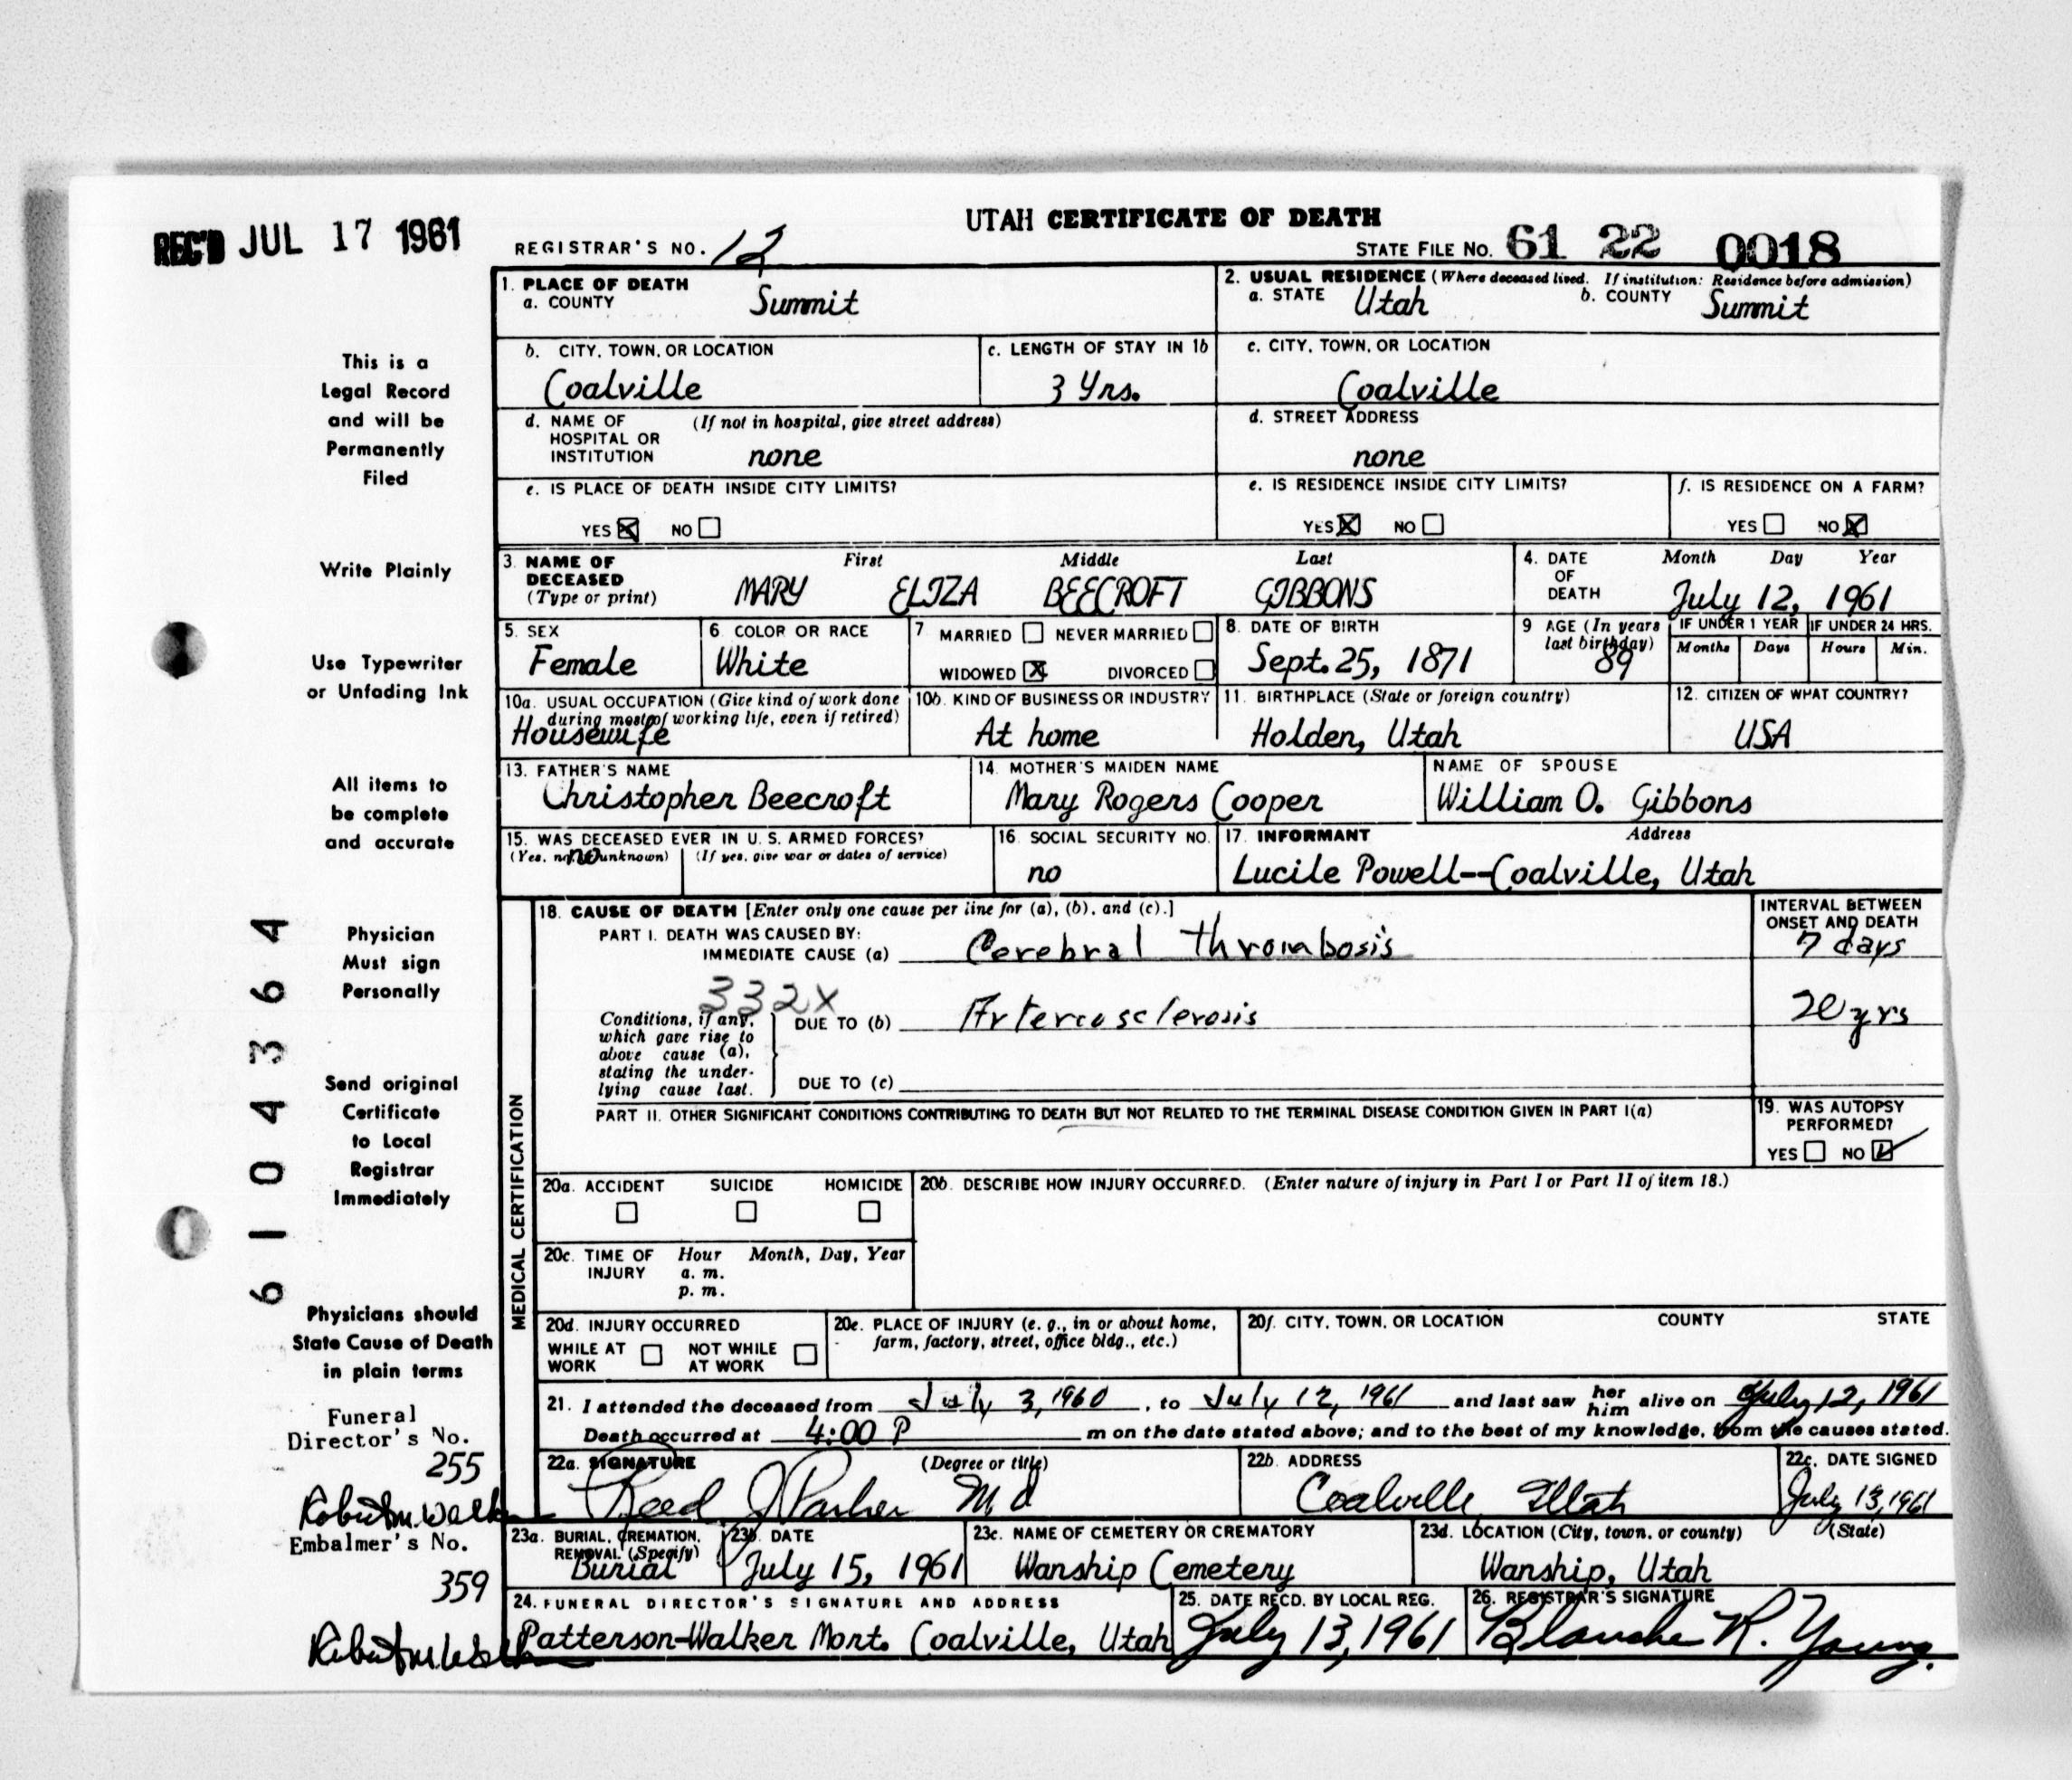 UTAH CERTIFICATE OF DEATH
REC'D JUL 17 1961
REGISTRAR'S NO. 12
STATE FILE NO. 61 22 0018
1. PLACE OF DEATH
a. COUNTY Summit
2. USUAL RESIDENCE (Where deceased lived. If institution: Residence before admission)
a. STATE Utah b. COUNTY Summit
b. CITY, TOWN, OR LOCATION
Coalville
c. LENGTH OF STAY IN 1b
3 Yrs.
c. CITY, TOWN, OR LOCATION
Coalville
d. NAME OF (If not in hospital, give street address)
HOSPITAL OR
INSTITUTION none
d. STREET ADDRESS
none
e. IS PLACE OF DEATH INSIDE CITY LIMITS?
YES X NO
e. IS RESIDENCE INSIDE CITY LIMITS?
YES X NO
f. IS RESIDENCE ON A FARM?
YES NO X
3. NAME OF DECEASED (Type or print)
First Middle Last
MARY ELIZA BEECROFT GIBBONS
4. DATE OF DEATH
Month Day Year
July 12, 1961
5. SEX
Female
6. COLOR OR RACE
White
7 MARRIED NEVER MARRIED
WIDOWED X DIVORCED
8. DATE OF BIRTH
Sept. 25, 1871
9 AGE (In years last birthday)
89
IF UNDER 1 YEAR IF UNDER 24 HRS.
Months Days Hours Min.
10a. USUAL OCCUPATION (Give kind of work done
during most of working life, even if retired)
Housewife
10b. KIND OF BUSINESS OR INDUSTRY
At home
11. BIRTHPLACE (State or foreign country)
Holden, Utah
12. CITIZEN OF WHAT COUNTRY?
USA
13. FATHER'S NAME
Christopher Beecroft
14. MOTHER'S MAIDEN NAME
Mary Rogers Cooper
NAME OF SPOUSE
William O. Gibbons
15. WAS DECEASED EVER IN U. S. ARMED FORCES?
(Yes, no, or unknown) (If yes, give war or dates of service)
no
16. SOCIAL SECURITY NO.
no
17. INFORMANT Address
Lucile Powell--Coalville, Utah
MEDICAL CERTIFICATION
18. CAUSE OF DEATH [Enter only one cause per line for (a), (b), and (c).]
PART I. DEATH WAS CAUSED BY:
IMMEDIATE CAUSE (a) Cerebral thrombosis
INTERVAL BETWEEN
ONSET AND DEATH
7 days
332X
Conditions, if any,
which gave rise to
above cause (a),
stating the under-
lying cause last.
DUE TO (b) Arteriosclerosis
20 yrs
DUE TO (c)
PART II. OTHER SIGNIFICANT CONDITIONS CONTRIBUTING TO DEATH BUT NOT RELATED TO THE TERMINAL DISEASE CONDITION GIVEN IN PART I(a)
19. WAS AUTOPSY
PERFORMED?
YES NO ✓
20a. ACCIDENT SUICIDE HOMICIDE
20b. DESCRIBE HOW INJURY OCCURRED. (Enter nature of injury in Part I or Part II of item 18.)
20c. TIME OF INJURY Hour Month, Day, Year
a. m.
p. m.
20d. INJURY OCCURRED
WHILE AT WORK NOT WHILE AT WORK
20e. PLACE OF INJURY (e. g., in or about home,
farm, factory, street, office bldg., etc.)
20f. CITY, TOWN, OR LOCATION COUNTY STATE
21. I attended the deceased from July 3, 1960, to July 12, 1961 and last saw her him alive on July 12, 1961
Death occurred at 4:00 P m on the date stated above; and to the best of my knowledge, from the causes stated.
22a. SIGNATURE (Degree or title)
Reed J Parker M d
22b. ADDRESS
Coalville Utah
22c. DATE SIGNED
July 13, 1961
23a. BURIAL, CREMATION,
REMOVAL (Specify)
Burial
23b. DATE
July 15, 1961
23c. NAME OF CEMETERY OR CREMATORY
Wanship Cemetery
23d. LOCATION (City, town, or county) (State)
Wanship, Utah
24. FUNERAL DIRECTOR'S SIGNATURE AND ADDRESS
Patterson-Walker Mort. Coalville, Utah
25. DATE RECD. BY LOCAL REG.
July 13, 1961
26. REGISTRAR'S SIGNATURE
Blanche R. Young
This is a
Legal Record
and will be
Permanently
Filed
Write Plainly
Use Typewriter
or Unfading Ink
All items to
be complete
and accurate
Physician
Must sign
Personally
Send original
Certificate
to Local
Registrar
Immediately
Physicians should
State Cause of Death
in plain terms
6104364
Funeral
Director's No.
255
Robert M. Walker
Embalmer's No.
359
Robert M. Walker